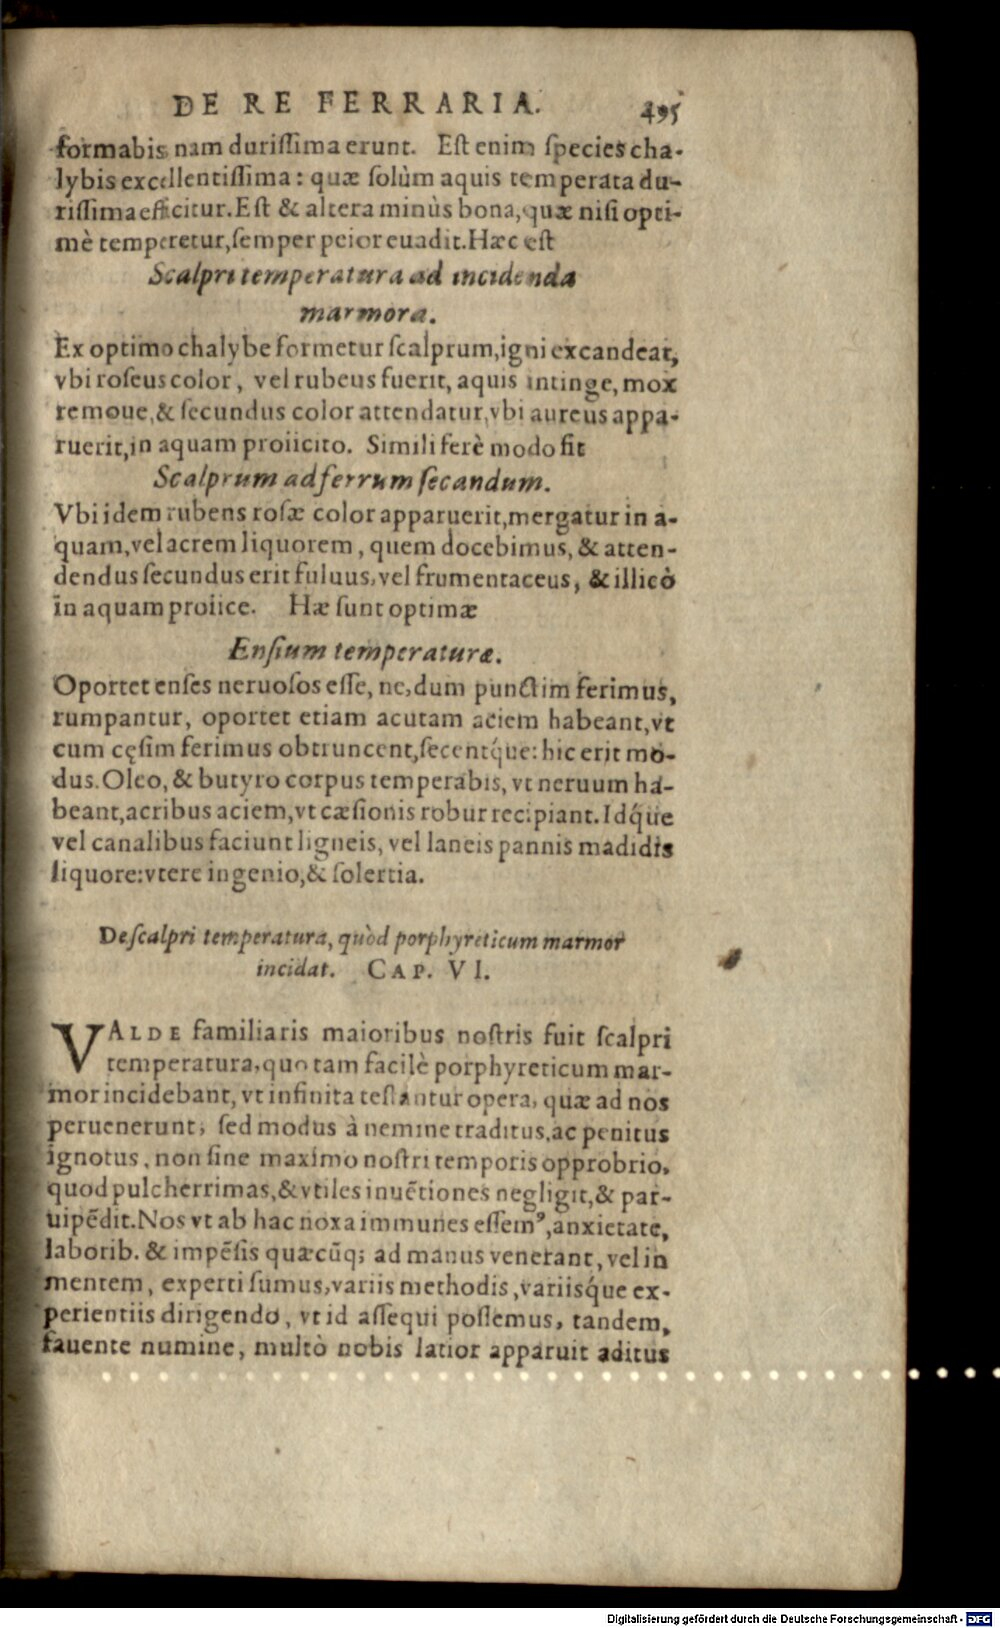 DE RE FERRARIA. 495
formabis, nam durissima erunt. Est enim species cha-
lybis excellentissima: quæ solùm aquis temperata du-
rissima efficitur. Est & altera minùs bona, quæ nisi opti-
mè temperetur, semper peior euadit. Hæc est
Scalpri temperatura ad incidenda
marmora.
Ex optimo chalybe formetur scalprum, igni excandeat,
vbi roseus color, vel rubeus fuerit, aquis intinge, mox
remoue, & secundus color attendatur, vbi aureus appa-
ruerit, in aquam proiicito. Simili ferè modo fit
Scalprum ad ferrum secandum.
Vbi idem rubens rosæ color apparuerit, mergatur in a-
quam, vel acrem liquorem, quem docebimus, & atten-
dendus secundus erit fuluus, vel frumentaceus, & illicò
in aquam proiice. Hæ sunt optimæ
Ensium temperaturæ.
Oportet enses neruosos esse, ne, dum punctim ferimus,
rumpantur, oportet etiam acutam aciem habeant, vt
cum cęsim ferimus obtruncent, secentq́ue: hic erit mo-
dus. Oleo, & butyro corpus temperabis, vt neruum ha-
beant, acribus aciem, vt cæsionis robur recipiant. Idq́ue
vel canalibus faciunt ligneis, vel laneis pannis madidis
liquore: vtere ingenio, & solertia.
De scalpri temperatura, quòd porphyreticum marmor
incidat. CAP. VI.
VALDE familiaris maioribus nostris fuit scalpri
temperatura, quo tam facilè porphyreticum mar-
mor incidebant, vt infinita testantur opera, quæ ad nos
peruenerunt, sed modus à nemine traditus, ac penitus
ignotus, non sine maximo nostri temporis opprobrio,
quod pulcherrimas, & vtiles inuẽtiones negligit, & par-
uipẽdit. Nos vt ab hac noxa immunes essemꝰ, anxietate,
laborib. & impẽsis quæcũq; ad manus venerant, vel in
mentem, experti sumus, variis methodis, variisq́ue ex-
perientiis dirigendo, vt id assequi possemus, tandem,
fauente numine, multò nobis latior apparuit aditus
Digitalisierung gefördert durch die Deutsche Forschungsgemeinschaft - DFG